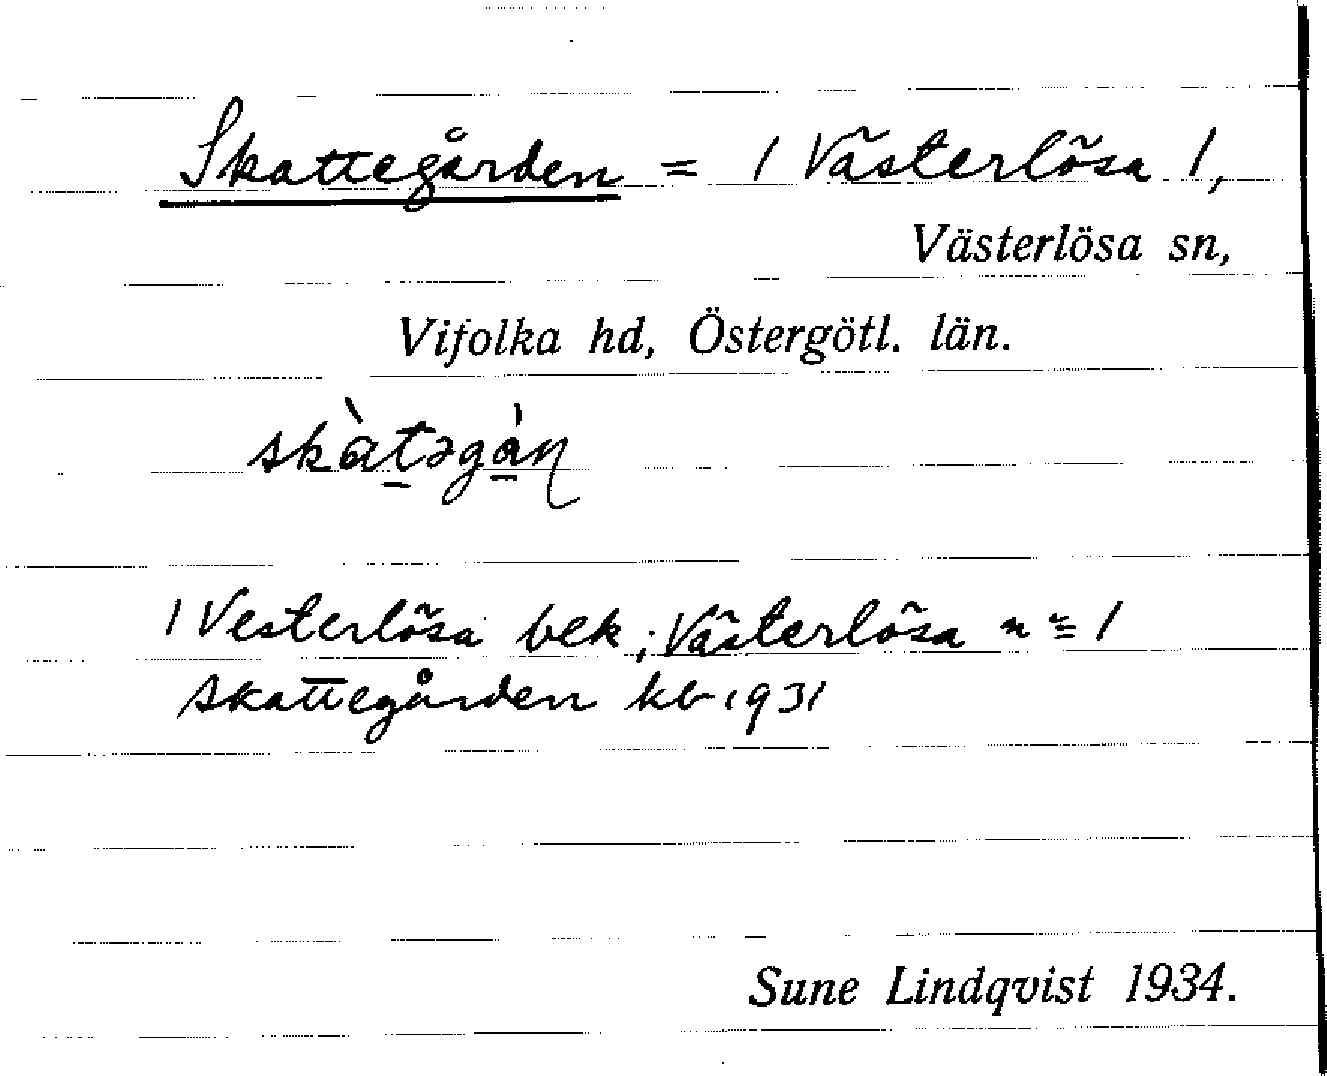 Skattegården = 1 Västerlösa 1,
Västerlösa sn,
Vifolka hd, Östergötl. län.
skàt̲əgà̲ɳ
1 Vesterlösa bek; Västerlösa n:r 1
Skattegården kb 1931
Sune Lindqvist 1934.